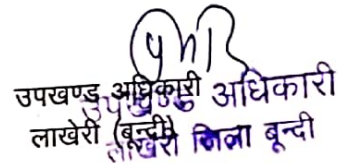 उपखण्ड अधिकारी
लाखेरी (बून्दी)
उपखण्ड अधिकारी
लाखेरी जिला बून्दी